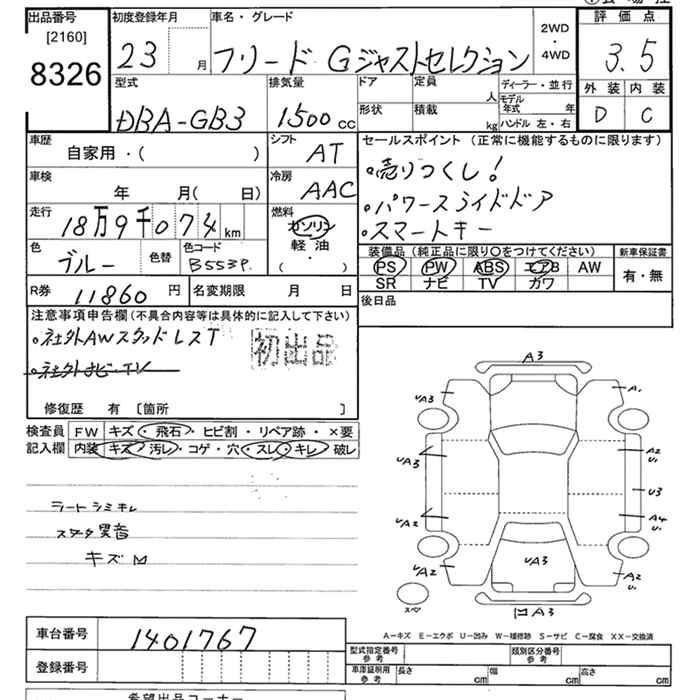 出品番号 [2160] 8326
初度登録年月 23 月
車名・グレード フリード Gジャストセレクション
2WD・4WD
評価点 3.5
外装 内装
D C
型式 DBA-GB3
排気量 1500 cc
ドア 定員 人
形状 積載 kg
ディーラー・並行
モデル年式 年
ハンドル 左・右
車歴 自家用・( )
シフト AT
車検 年 月( 日)
冷房 AAC
走行 18万9千074 km
燃料 ガソリン 軽油 ( )
色 ブルー 色替
色コード B553P
R券 11860 円
名変期限 月 日
セールスポイント (正常に機能するものに限ります)
・売りつくし!
・パワースライドドア
・スマートキー
装備品 (純正品に限り○をつけてください)
PS PW ABS エアB AW
SR ナビ TV カワ
新車保証書 有・無
後日品
注意事項申告欄 (不具合内容等は具体的に記入して下さい)
・社外AWスタッドレスT
・社外ナビ・TV
初出品
修復歴 有 [箇所 ]
検査員記入欄
FW キズ・飛石・ヒビ割・リペア跡・×要
内装 キズ・汚レ・コゲ・穴・スレ・キレ・破レ
シミキレ
スタータ異音
キズ
A3
UA3 A1
UA3 A2 U1
U3
UA2 A4 U1
UA3
UA2 A2 U1
スペ
A3
A-キズ E-エクボ U-凹み W-補修跡 S-サビ C-腐食 XX-交換済
車台番号 1401767
登録番号
型式指定番号 参考
類別区分番号 参考
車庫証明用 参考 長さ cm 幅 cm 高さ cm
希望出品コーナー